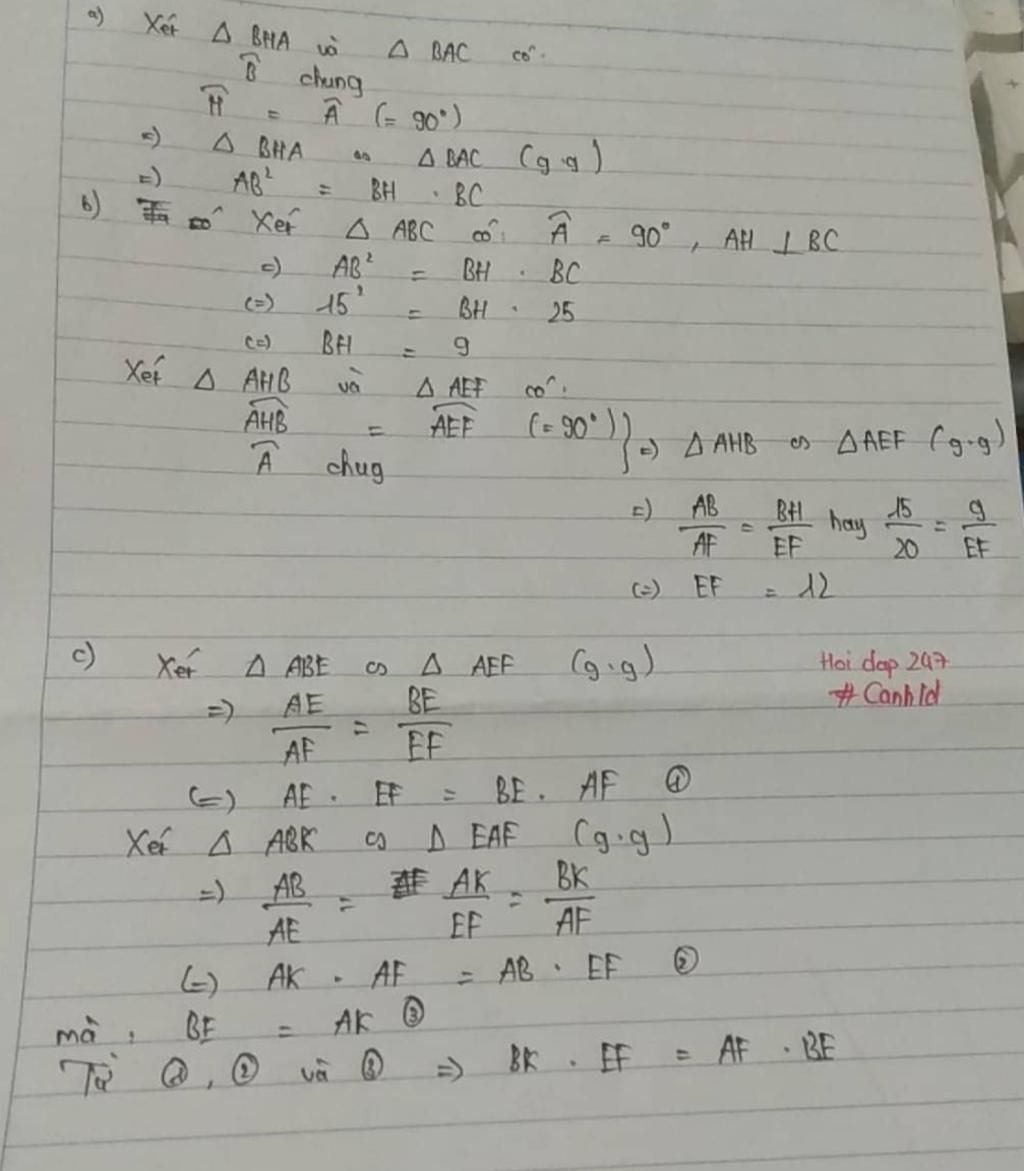 a) Xét Δ BHA và Δ BAC có:
B̂ chung
Ĥ = Â (= 90°)
=) Δ BHA ∽ Δ BAC (g.g)
=) AB² = BH . BC
b) Xét Δ ABC có: Â = 90°, AH ⊥ BC
=) AB² = BH . BC
(=) 15² = BH . 25
(=) BH = 9
Xét Δ AHB và Δ AEF có:
\widehat{AHB} = \widehat{AEF} (= 90°) } =) Δ AHB ∽ Δ AEF (g.g)
 chug
=) AB/AF = BH/EF hay 15/20 = 9/EF
(=) EF = 12
c) Xét Δ ABE ∽ Δ AEF (g.g)
Hoi dap 247
# Canh1d
=) AE/AF = BE/EF
(=) AE . EF = BE . AF ①
Xét Δ ABK ∽ Δ EAF (g.g)
=) AB/AE = AK/EF = BK/AF
(=) AK . AF = AB . EF ②
mà : BE = AK ③
Từ ①, ② và ③ => BK . EF = AF . BE